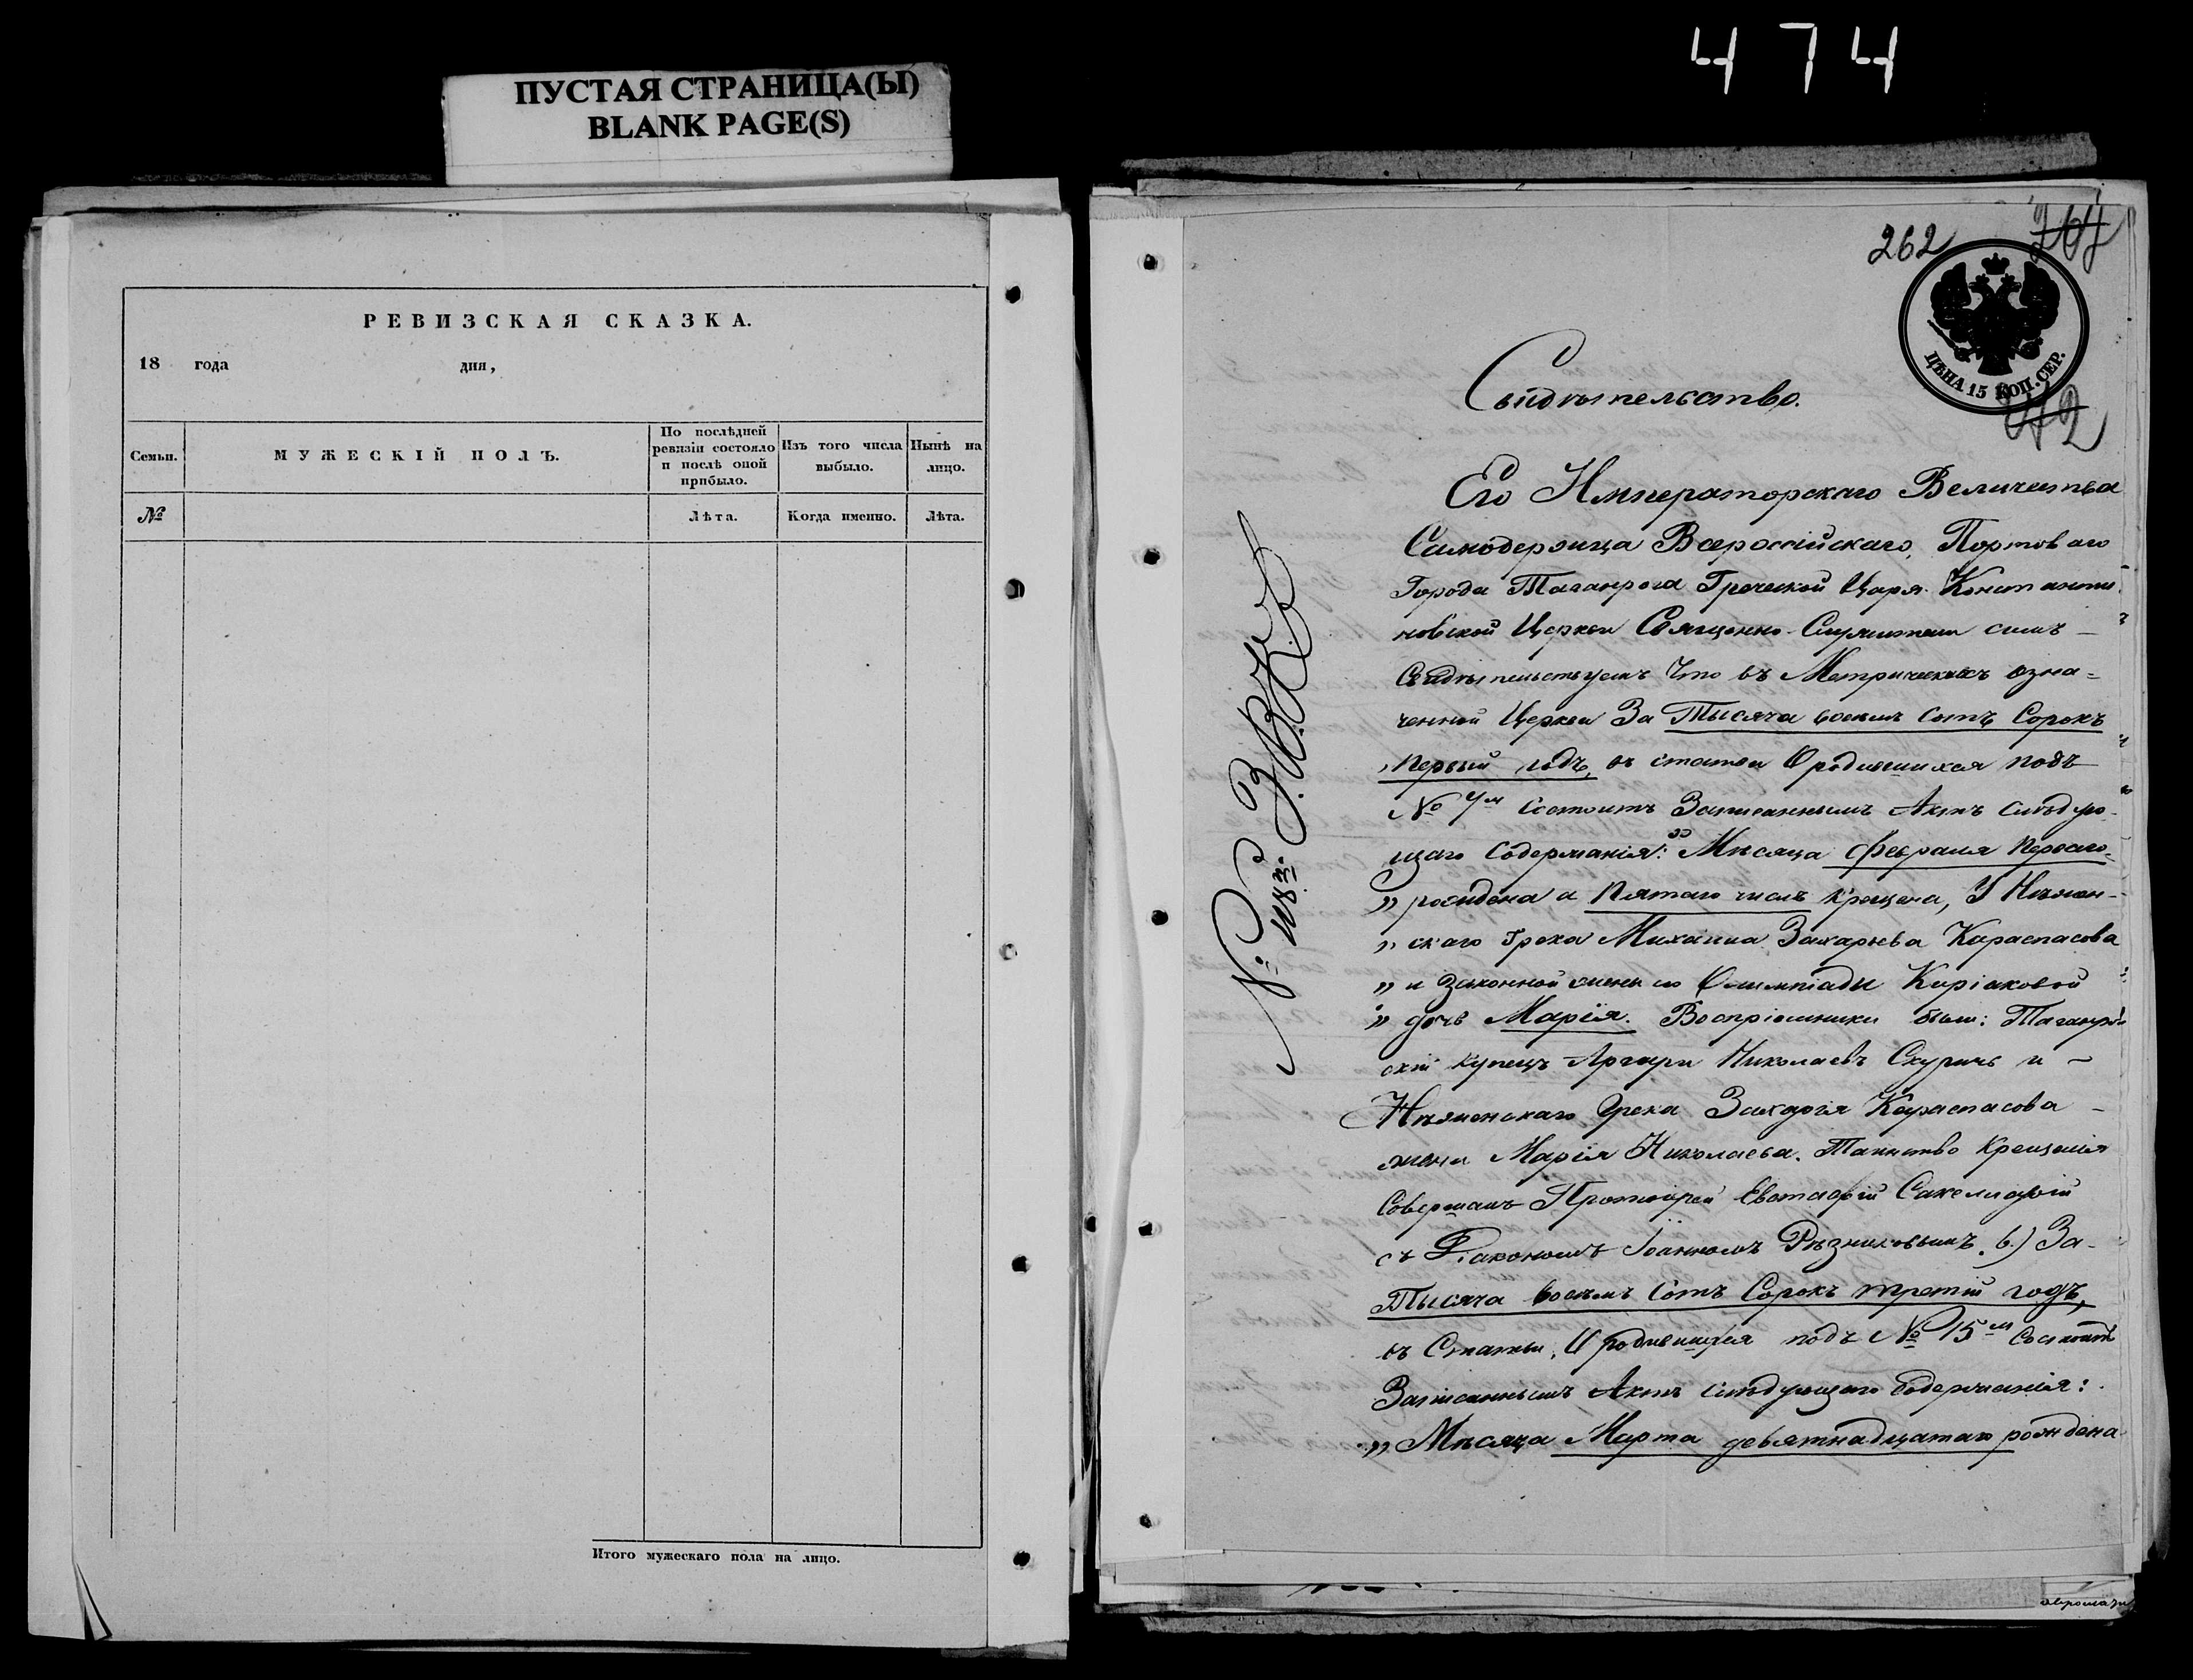 474
ПУСТАЯ СТРАНИЦА(Ы)
BLANK PAGE(S)
РЕВИЗСКАЯ СКАЗКА.
18 года дня,
Семьи.
МУЖЕСКІЙ ПОЛЪ.
По послѣдней
ревизіи состояло
и послѣ оной
прибыло.
Изъ того числа
выбыло.
Нынѣ на
лицо.
№
Лѣта.
Когда именно.
Лѣта.
Итого мужескаго пола на лицо.
262
ЦѢНА 15 КОП. СЕР.
Свидѣтельство.
Его Императорскаго Величества
Самодержца Всероссійскаго, Портоваго
Города Таганрога Греческой Царя Константи-
новской Церкви Священно-Служители симъ
Свидѣтельствуемъ Что въ Метрическихъ озна-
ченной Церкви За Тысяча восемь сотъ Сорокъ
Первый годъ, въ статьи О родившихся подъ
№ 7м Состоитъ Записаннымъ Актъ слѣдую-
щаго Содержанія: Мѣсяца Февраля Перваго
„ рождена а Пятаго числа крещена, У Нѣжин-
„ скаго Грека Михаила Захарьева Караспасова
„ и Законной жены его Олимпіады Киріаковой
„ дочь Марія. Воспріемники были: Таганрог
скій купецъ Аргири Николаевъ и
Нѣжинскаго Грека Захарія Караспасова
жена Марія Николаева. Таинство Крещенія
Совершалъ Протоіерей Евстафій Сакелларій
съ Діакономъ Іоанномъ Рѣзниковымъ. в.) За
Тысяча восемь Сотъ Сорокъ третій годъ,
въ Статьи, О родившихся подъ № 15м Состоитъ
Записаннымъ Актъ слѣдующаго Содержанія:
„ Мѣсяца Марта девятнадцатаго рождена